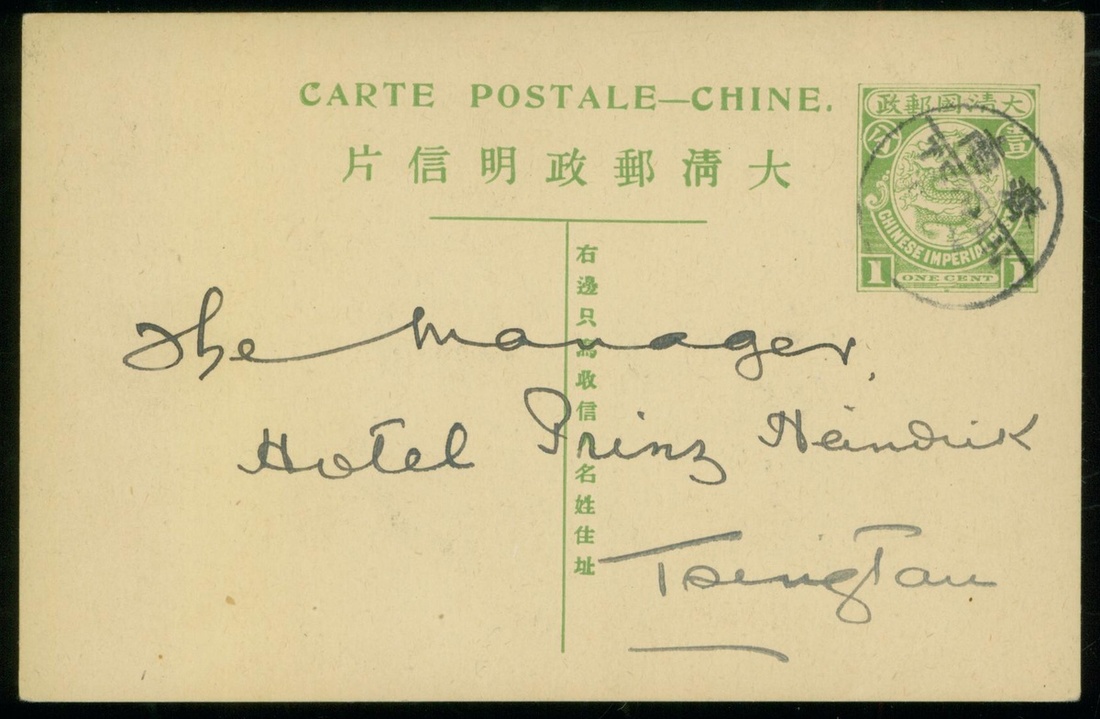 CARTE POSTALE—CHINE.
片信明政郵清大
政郵國清大
分 壹
CHINESE IMPERIAL
1 ONE CENT 1
右邊只寫收信人名姓住址
The Manager,
Hotel Prinz Heindrik
TsingTau